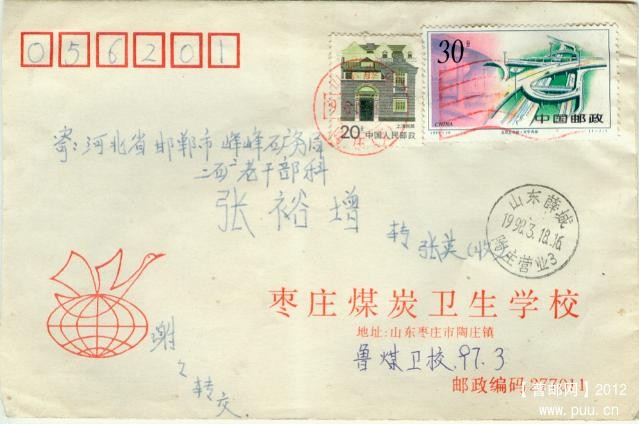 056201
30分
CHINA
中国邮政
20分
中国人民邮政
上海民居
寄:河北省邯郸市峰峰矿务局
二矿老干部科
张裕增
转 张英(收)
山东薛城
1998.3.18.16
陶庄营业3
枣庄煤炭卫生学校
地址:山东枣庄市陶庄镇
鲁煤卫校.97.3
邮政编码277011
谢
转交
【督邮网】2012
www.puu.cn